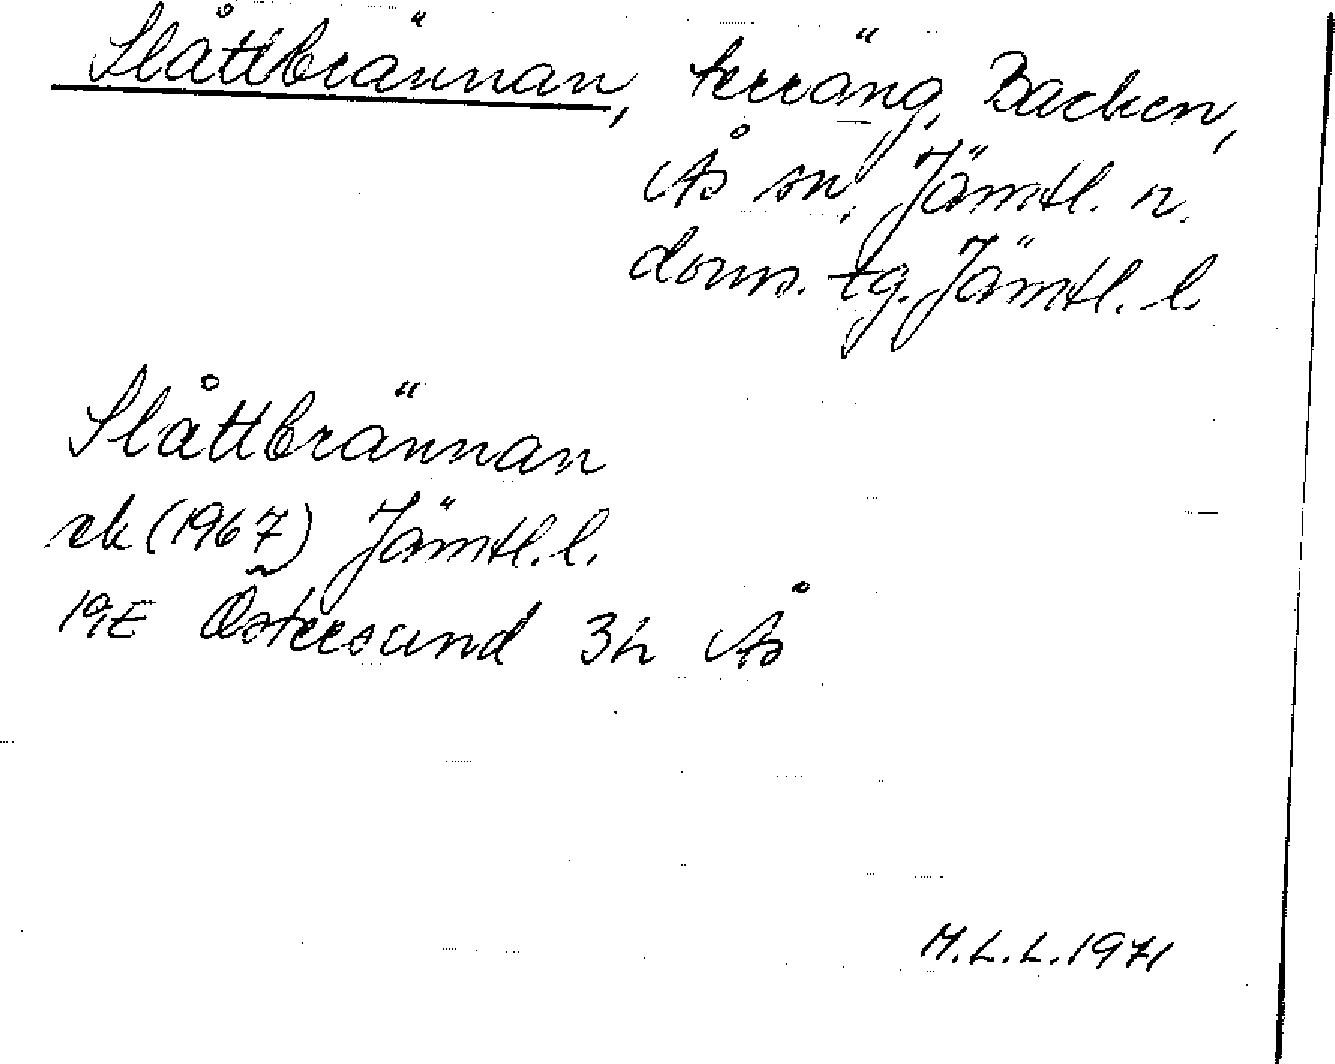 Slåttbrännan, terräng, Backen,
Ås sn, Jämtl. n.
doms. tg. Jämtl. l.
Slåttbrännan
ek (1967) Jämtl. l.
19E Östersund 3h Ås
M.L.L. 1971